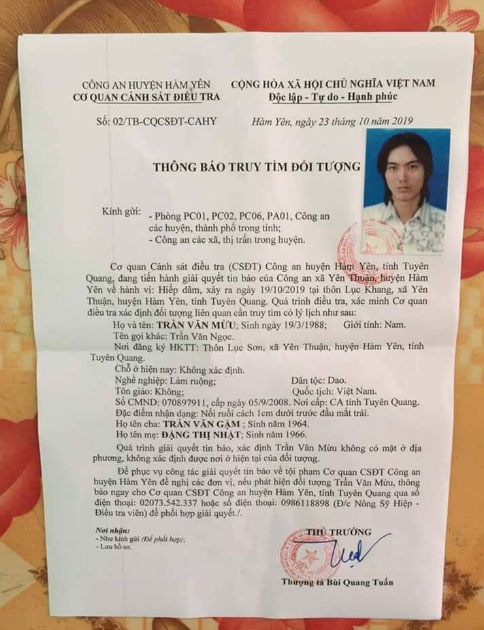 CÔNG AN HUYỆN HÀM YÊN
CƠ QUAN CẢNH SÁT ĐIỀU TRA
CỘNG HÒA XÃ HỘI CHỦ NGHĨA VIỆT NAM
Độc lập - Tự do - Hạnh phúc
Số: 02/TB-CQCSĐT-CAHY
Hàm Yên, ngày 23 tháng 10 năm 2019
THÔNG BÁO TRUY TÌM ĐỐI TƯỢNG
Kính gửi:
- Phòng PC01, PC02, PC06, PA01, Công an
các huyện, thành phố trong tỉnh;
- Công an các xã, thị trấn trong huyện.
Cơ quan Cảnh sát điều tra (CSĐT) Công an huyện Hàm Yên, tỉnh Tuyên
Quang, đang tiến hành giải quyết tin báo của Công an xã Yên Thuận, huyện Hàm
Yên về hành vi: Hiếp dâm, xảy ra ngày 19/10/2019 tại thôn Lục Khang, xã Yên
Thuận, huyện Hàm Yên, tỉnh Tuyên Quang. Quá trình điều tra, xác minh Cơ quan
điều tra xác định đối tượng liên quan cần truy tìm có lý lịch như sau:
Họ và tên: TRẦN VĂN MỪU; Sinh ngày 19/3/1988; Giới tính: Nam.
Tên gọi khác: Trần Văn Ngọc.
Nơi đăng ký HKTT: Thôn Lục Sơn, xã Yên Thuận, huyện Hàm Yên, tỉnh
Tuyên Quang.
Chỗ ở hiện nay: Không xác định.
Nghề nghiệp: Làm ruộng; Dân tộc: Dao.
Tôn giáo: Không; Quốc tịch: Việt Nam.
Số CMND: 070897911, cấp ngày 05/9/2008. Nơi cấp: CA tỉnh Tuyên Quang.
Đặc điểm nhận dạng: Nốt ruồi cách 1cm dưới trước đầu mắt trái.
Họ tên cha: TRẦN VĂN GẬM ; Sinh năm 1964.
Họ tên mẹ: ĐẶNG THỊ NHẬT; Sinh năm 1966.
Quá trình giải quyết tin báo, xác định Trần Văn Mừu không có mặt ở địa
phương, không xác định được nơi ở hiện tại của đối tượng.
Để phục vụ công tác giải quyết tin báo về tội phạm Cơ quan CSĐT Công an
huyện Hàm Yên đề nghị các đơn vị, nếu phát hiện đối tượng Trần Văn Mừu, thông
báo ngay cho Cơ quan CSĐT Công an huyện Hàm Yên, tỉnh Tuyên Quang qua số
điện thoại: 02073.542.337 hoặc số điện thoại: 0986118898 (Đ/c Nông Sỹ Hiệp -
Điều tra viên) để phối hợp giải quyết./.
Nơi nhận:
- Như kính gửi (Để phối hợp);
- Lưu hồ sơ.
THỦ TRƯỞNG
Thượng tá Bùi Quang Tuấn